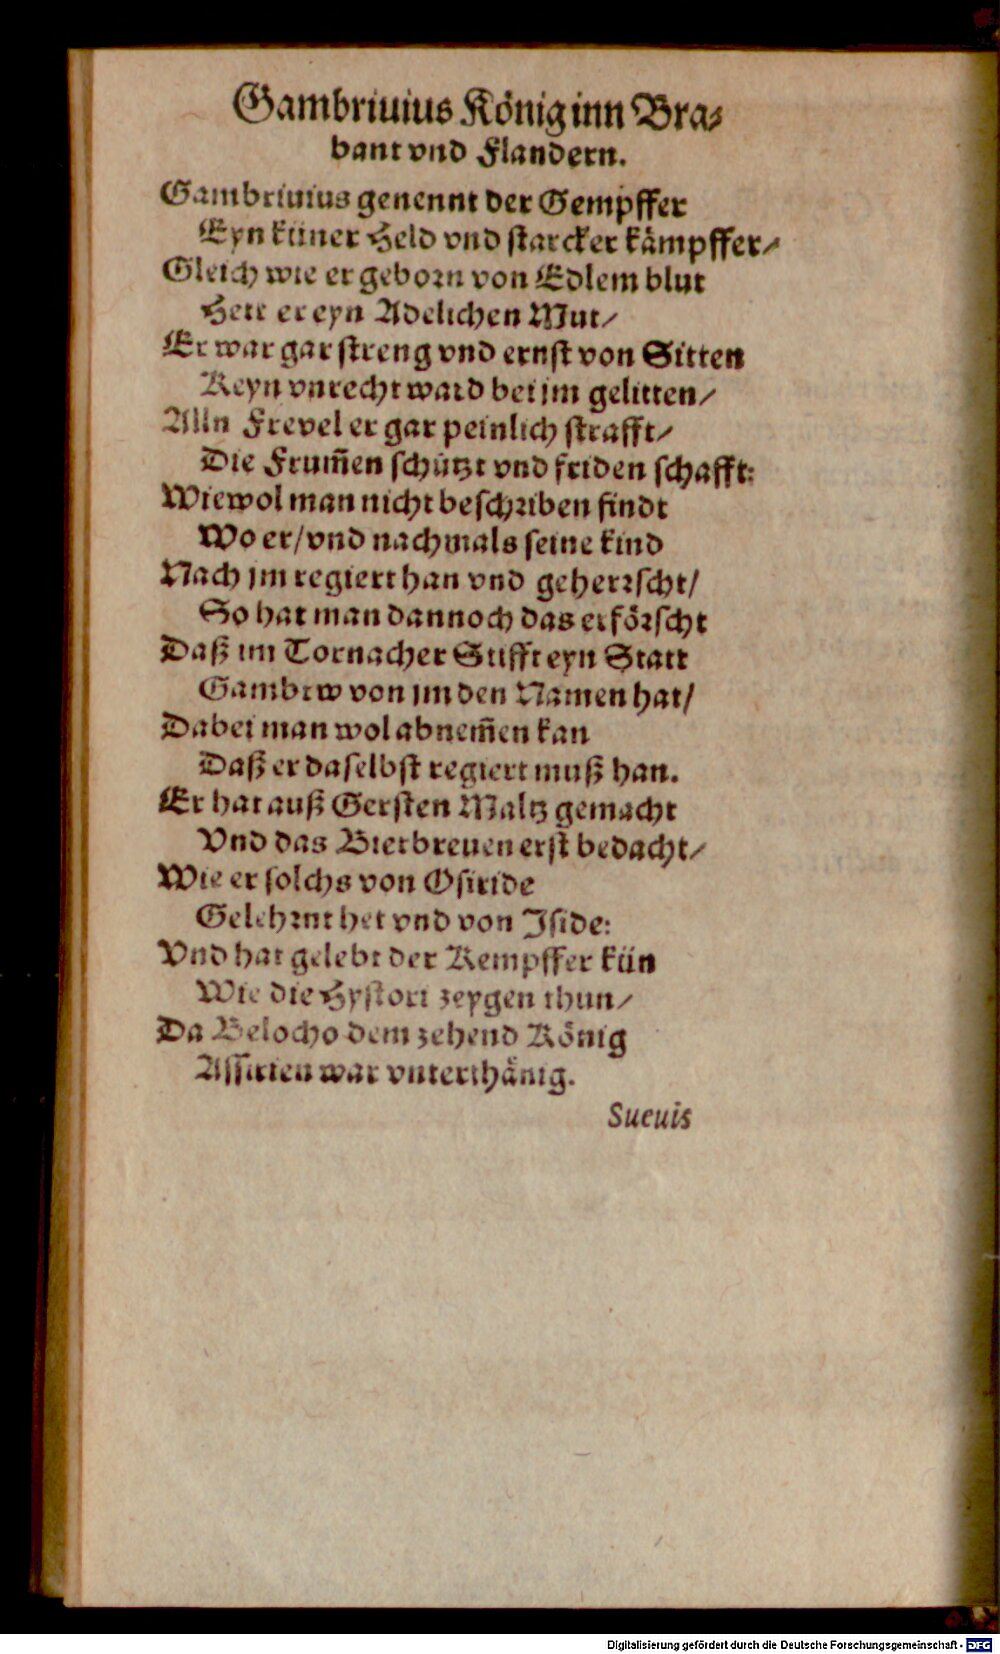 Gambriuius König inn Bra⸗
bant vnd Flandern.
Gambriuius genennt der Gempffer
Eyn küner Held vnd starcker kämpffer/
Gleich wie er geborn von Edlem blut
Hett er eyn Adelichen Mut/
Er war gar streng vnd ernst von Sitten
Keyn vnrecht ward bei jm gelitten/
Alln Frevel er gar peinlich strafft/
Die Frum̃en schützt vnd friden schafft:
Wiewol man nicht beschriben findt
Wo er/ vnd nachmals seine kind
Nach jm regiert han vnd geherrscht/
So hat man dannoch das erförscht
Daß im Tornacher Stifft eyn Statt
Gambrw von jm den Namen hat/
Dabei man wol abnem̃en kan
Daß er daselbst regiert muß han.
Er hat auß Gersten Maltz gemacht
Vnd das Bierbreuen erst bedacht/
Wie er solchs von Osiride
Gelehrnt het vnd von Iside:
Vnd hat gelebt der Kempffer kün
Wie die Hystori zeygen thun/
Da Belocho dem zehend König
Assirien war vnterthänig.
Sueuis
Digitalisierung gefördert durch die Deutsche Forschungsgemeinschaft - DFG